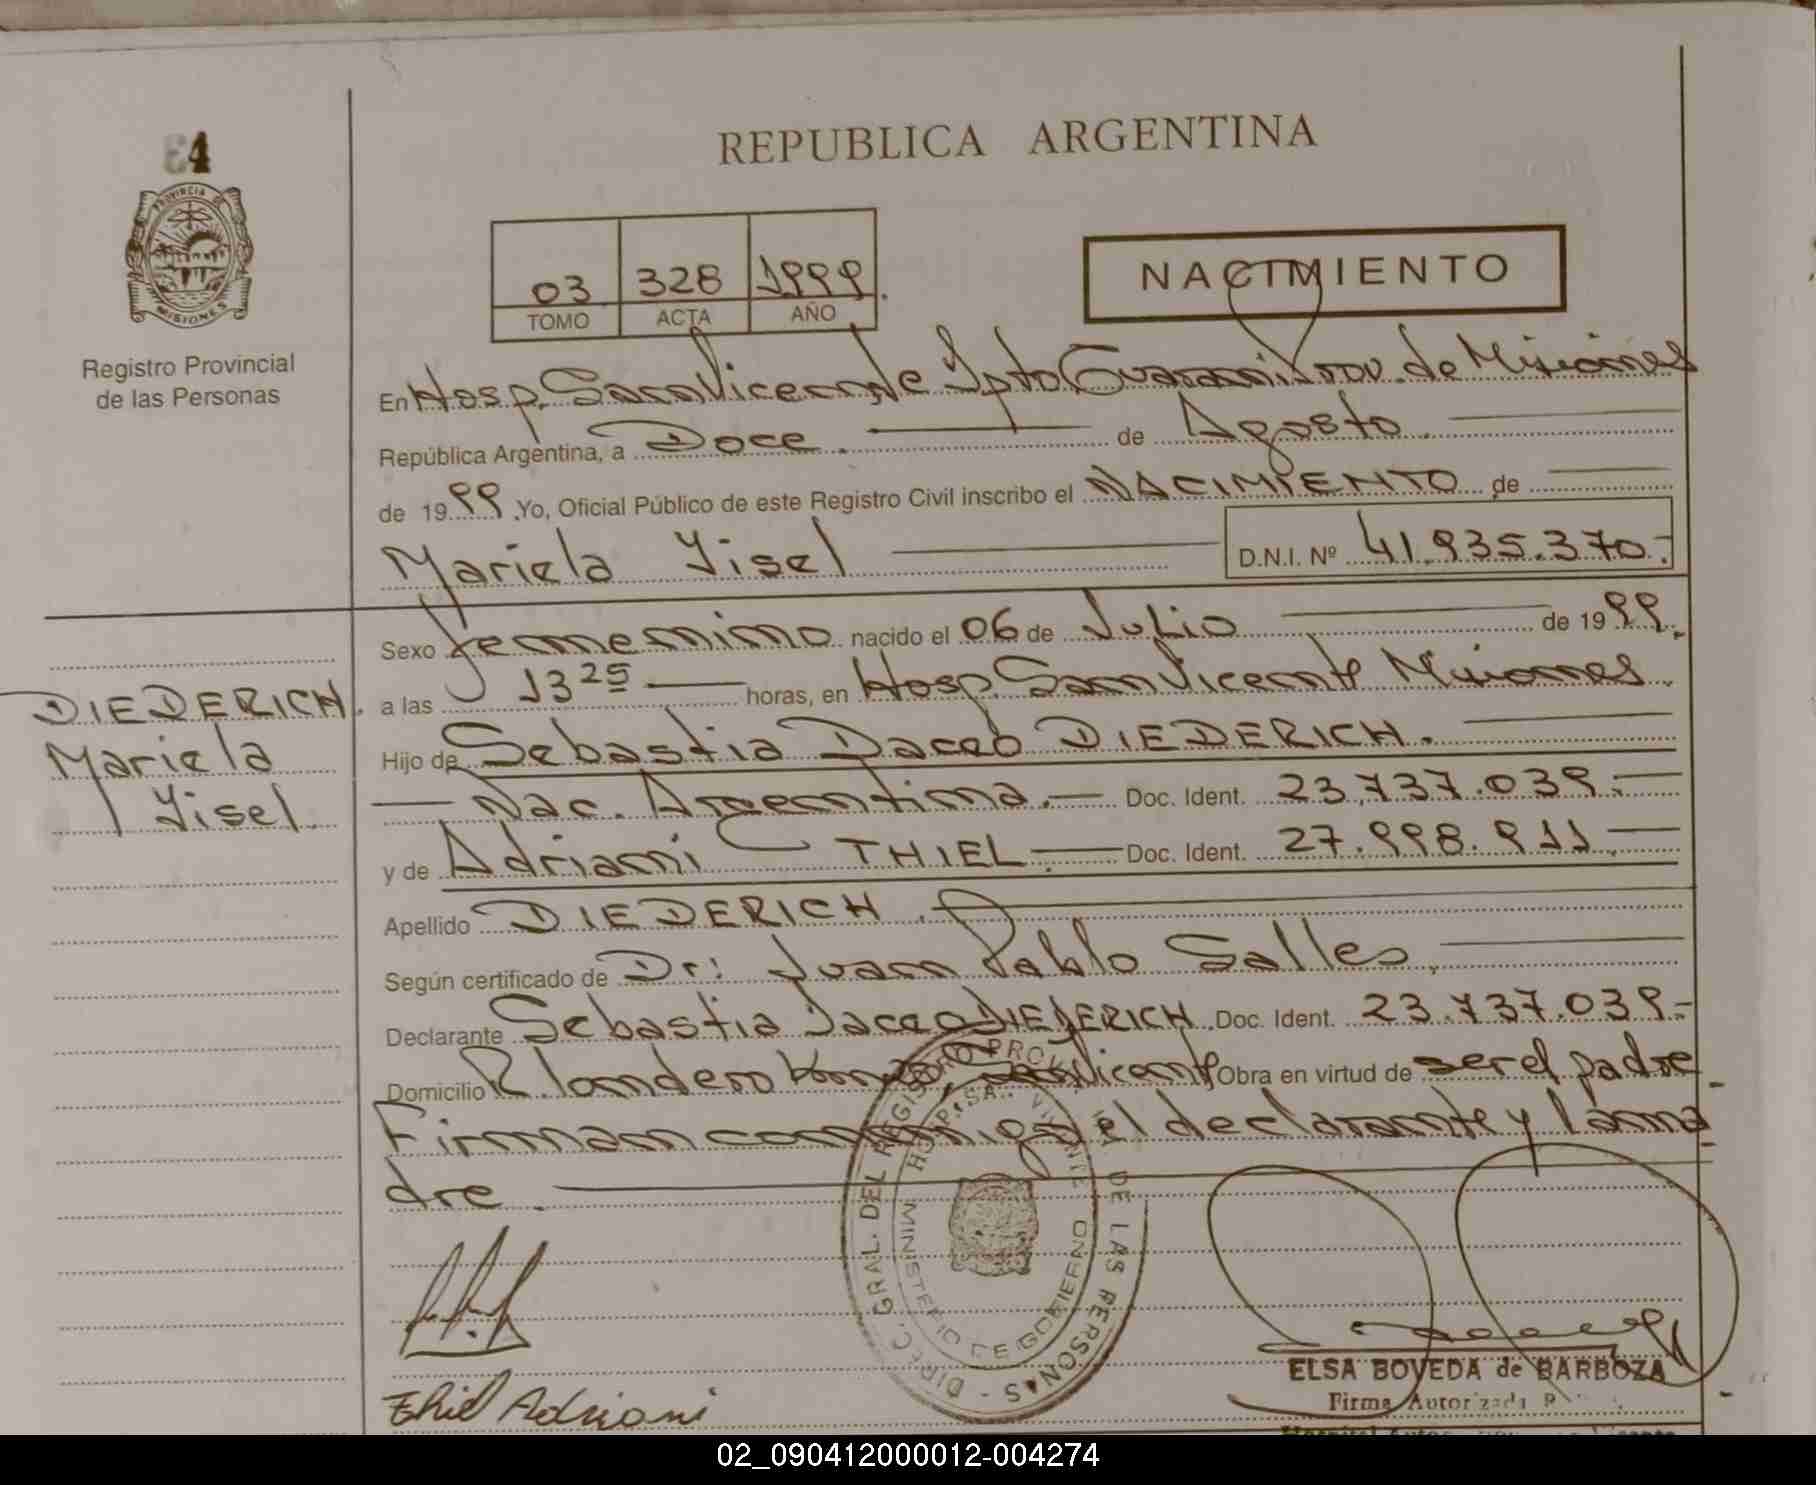 34
PROVINCIA DE
MISIONES
Registro Provincial
de las Personas
REPUBLICA ARGENTINA
03 328 1999
TOMO ACTA AÑO
NACIMIENTO
En Hosp. San Vicente Dpto Guaraní Prov. de Misiones
República Argentina, a Doce. de Agosto.
de 1999 Yo, Oficial Público de este Registro Civil inscribo el NACIMIENTO de
Mariela Yisel D.N.I. Nº 41.935.370.-
Sexo femenino nacido el 06 de Julio de 1999.
a las 13 25 horas, en Hosp. San Vicente Misiones.
Hijo de Sebastia Daceo DIEDERICH.
Nac. Argentina. Doc. Ident. 23.737.039.-
y de Adriani THIEL. Doc. Ident. 27.998.911.
Apellido DIEDERICH.
Según certificado de Dr: Juan Pablo Salles.
Declarante Sebastia Daceo DIEDERICH. Doc. Ident. 23.737.039.-
Domicilio R. Vicente Obra en virtud de ser el padre
Firman conmigo el declarante y la ma
dre.
DIEDERICH.
Mariela
Yisel.
DIREC. GRAL. DEL REGISTRO PROV. DE LAS PERSONAS -
HOSP. SAN VICENTE
MINISTERIO DE GOBIERNO
Thiel Adriani
ELSA BOVEDA de BARBOZA
Firma Autorizada
02_090412000012-004274